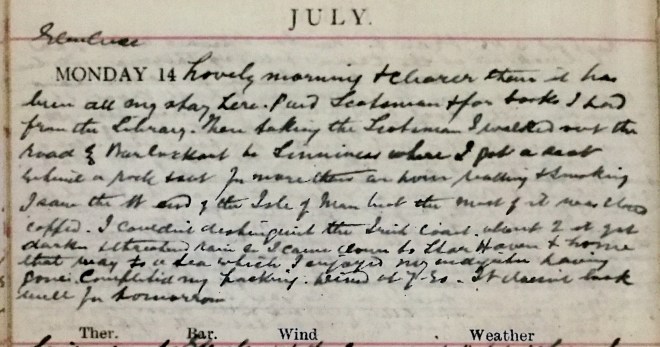 JULY.
Glenluce
MONDAY 14 Lovely morning & clearer than it has
been all my stay here. Paid Scotsman & for books I had
from the Library. Then taking the Scotsman I walked out the
road by to where I got a seat
behind a rock & sat for more than an hour reading & smoking
I saw the W end of the Isle of Man but the most of it was cloud
capped. I couldn't distinguish the Irish Coast. about 2 it got
dark & threatened rain & I came down to Haven & home
that way to a tea which I enjoyed my indigestion having
gone. Completed my packing. Retired at 9.30. It doesn't look
well for tomorrow
Ther. Bar. Wind Weather